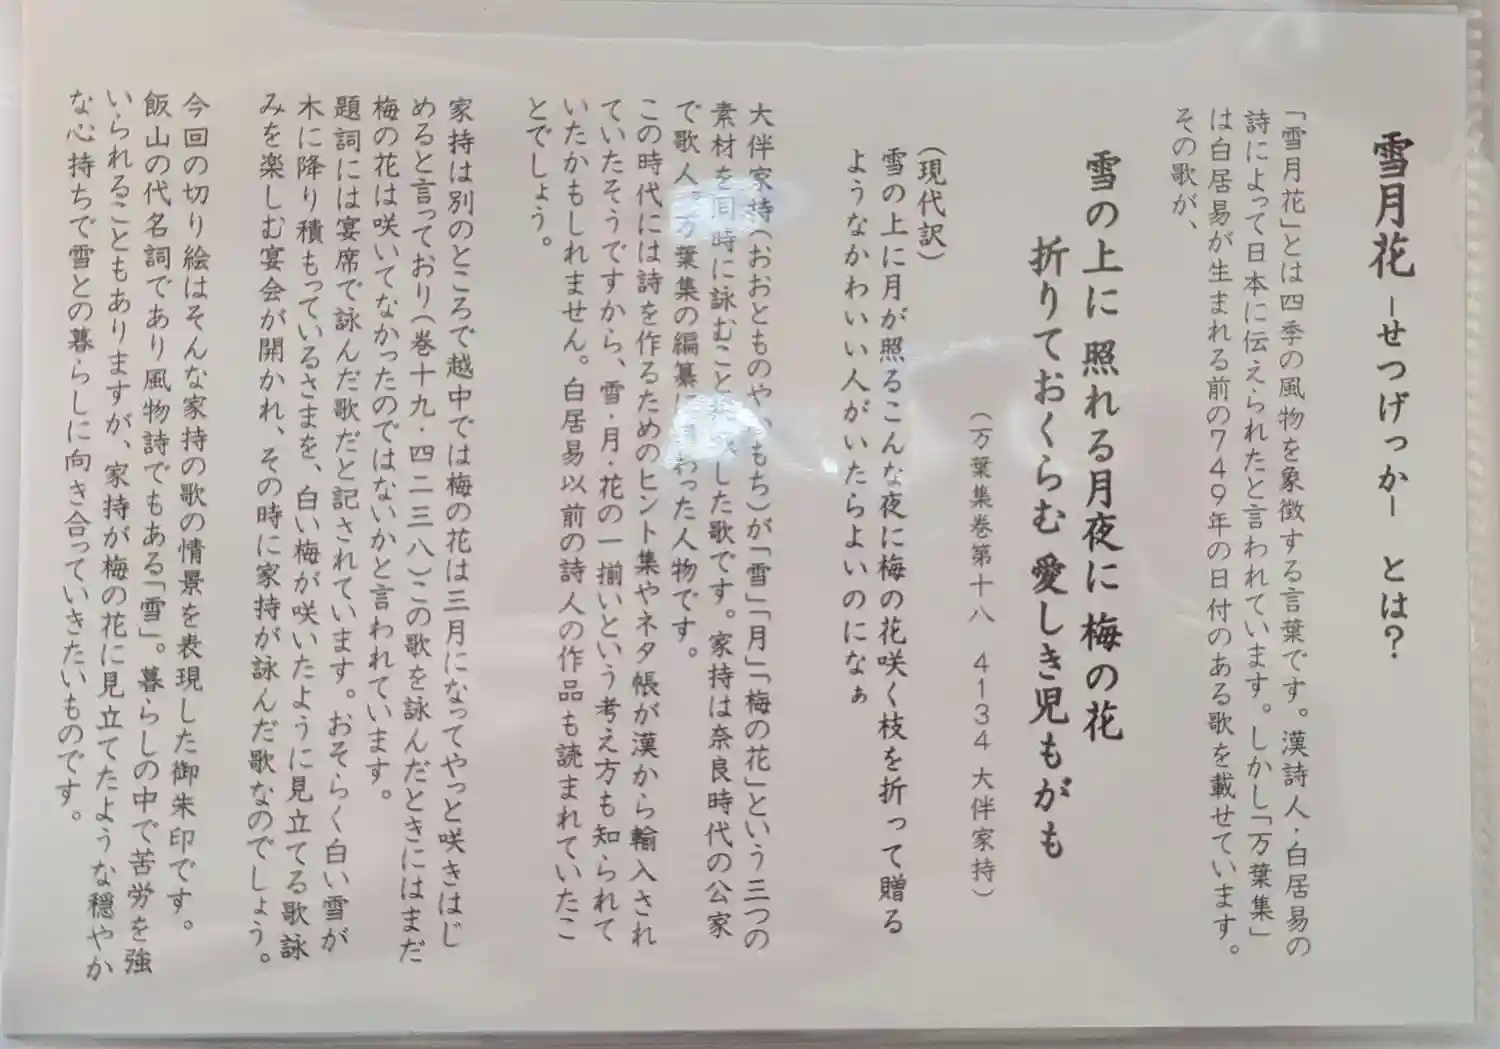 雪月花 －せつげっか－ とは？
「雪月花」とは四季の風物を象徴する言葉です。漢詩人・白居易の
詩によって日本に伝えられたと言われています。しかし「万葉集」
は白居易が生まれる前の749年の日付のある歌を載せています。
その歌が、
雪の上に 照れる月夜に 梅の花
折りておくらむ 愛しき児もがも
（万葉集巻第十八 4134 大伴家持）
（現代訳）
雪の上に月が照るこんな夜に梅の花咲く枝を折って贈る
ようなかわいい人がいたらよいのになぁ
大伴家持（おおとものやかもち）が「雪」「月」「梅の花」という三つの
素材を同時に詠むこと した歌です。家持は奈良時代の公家
で歌人。万葉集の編纂に わった人物です。
この時代には詩を作るためのヒント集やネタ帳が漢から輸入され
ていたそうですから、雪・月・花の一揃いという考え方も知られて
いたかもしれません。白居易以前の詩人の作品も読まれていたこ
とでしょう。
家持は別のところで越中では梅の花は三月になってやっと咲きはじ
めると言っており（巻十九・四二三八）この歌を詠んだときにはまだ
梅の花は咲いてなかったのではないかと言われています。
題詞には宴席で詠んだ歌だと記されています。おそらく白い雪が
木に降り積もっているさまを、白い梅が咲いたように見立てる歌詠
みを楽しむ宴会が開かれ、その時に家持が詠んだ歌なのでしょう。
今回の切り絵はそんな家持の歌の情景を表現した御朱印です。
飯山の代名詞であり風物詩でもある「雪」。暮らしの中で苦労を強
いられることもありますが、家持が梅の花に見立てたような穏やか
な心持ちで雪との暮らしに向き合っていきたいものです。